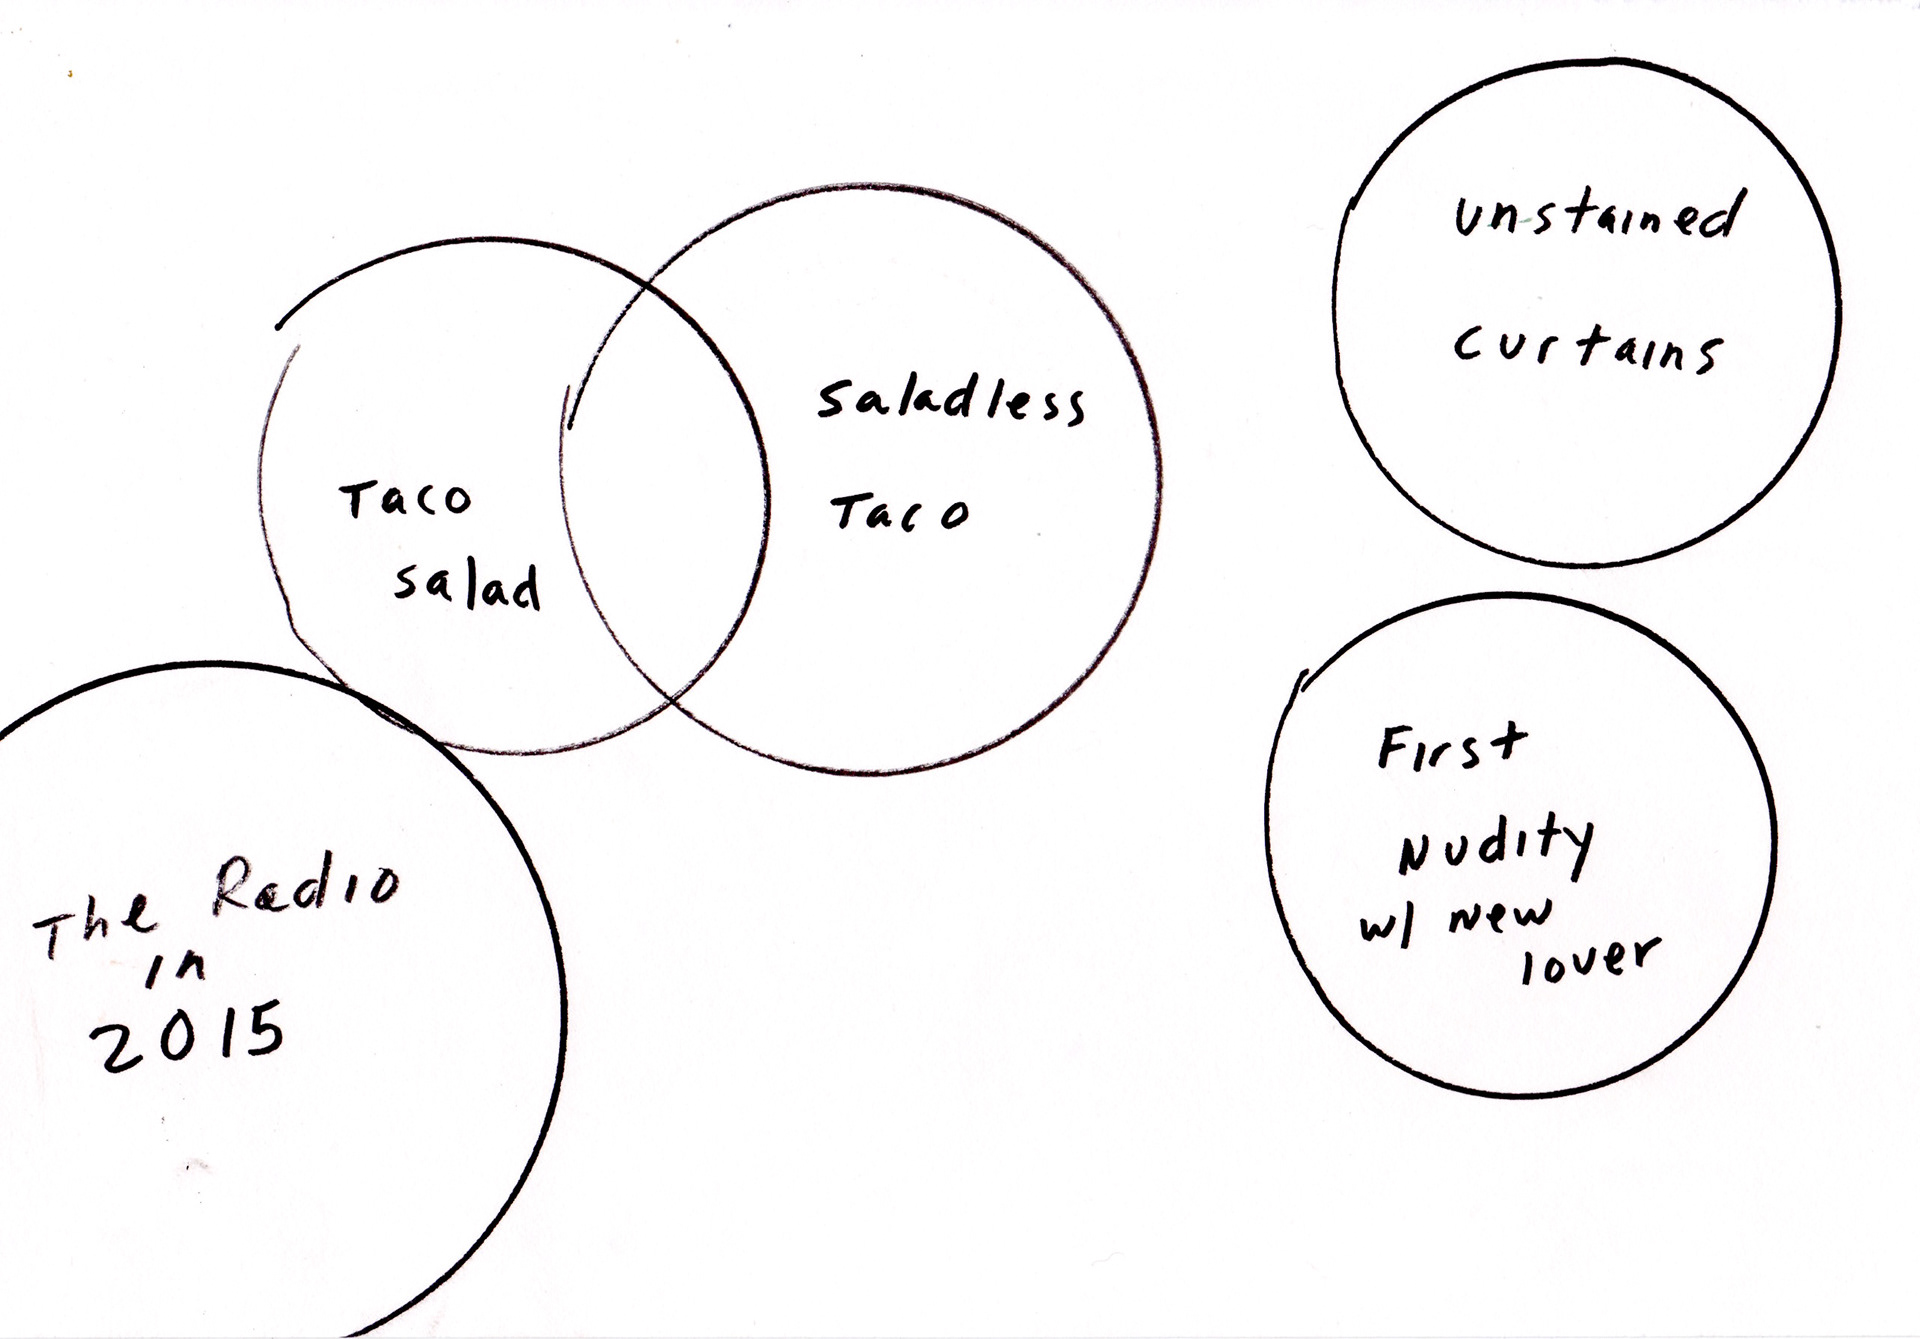 Taco
salad
saladless
Taco
unstained
curtains
First
Nudity
w/ new
lover
The Radio
in
2015